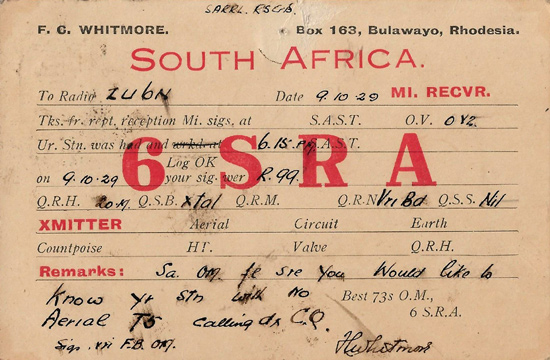 SARRL. RSGB.
F. G. WHITMORE. Box 163, Bulawayo, Rhodesia.
SOUTH AFRICA.
To Radio ZU6N Date 9.10.29 MI. RECVR.
Tks. fr. rept. reception Mi. sigs, at S.A.S.T. O.V. 0 V2.
Ur. Stn. was hrd and wrkd. at 6.15. PM S.A.S.T.
6 S R A
Log OK
on 9.10.29 your sig. wer R.99.
Q.R.H. 20.M. Q.S.B. xtal Q.R.M. Q.R.N. Vri Bd Q.S.S. Nil
XMITTER Aerial Circuit Earth
Countpoise HT. Valve Q.R.H.
Remarks: Sa. OM. fe sre you Would like to
Know yr Stn with No Best 73s O.M.,
Aerial TS calling dx C.Q. 6 S.R.A.
Sigs. vri F.B. OM. F.Whitmore